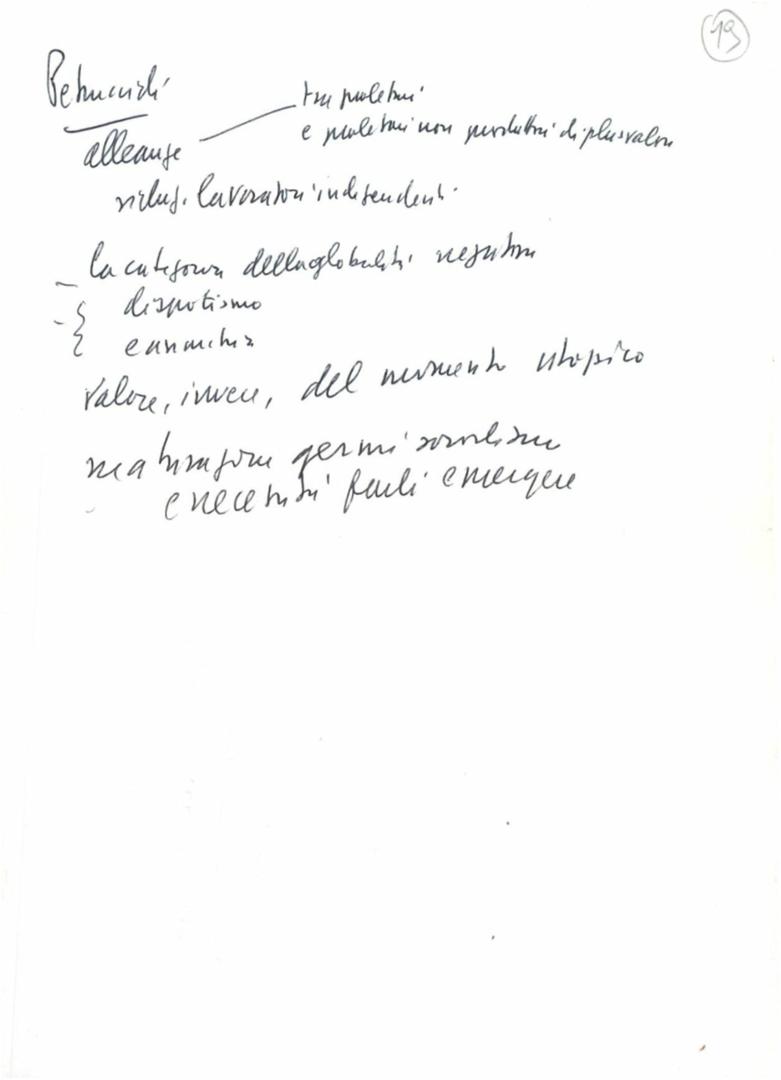 19
Petruccioli
alleanze
tra proletari
e proletari non produttori di plusvalore
lavoratori indipendenti
la categoria della globalità negativa
dispotismo
e anarchia
valore, invece, del momento utopico
maturazione germi socialismo
e necessità farli emergere